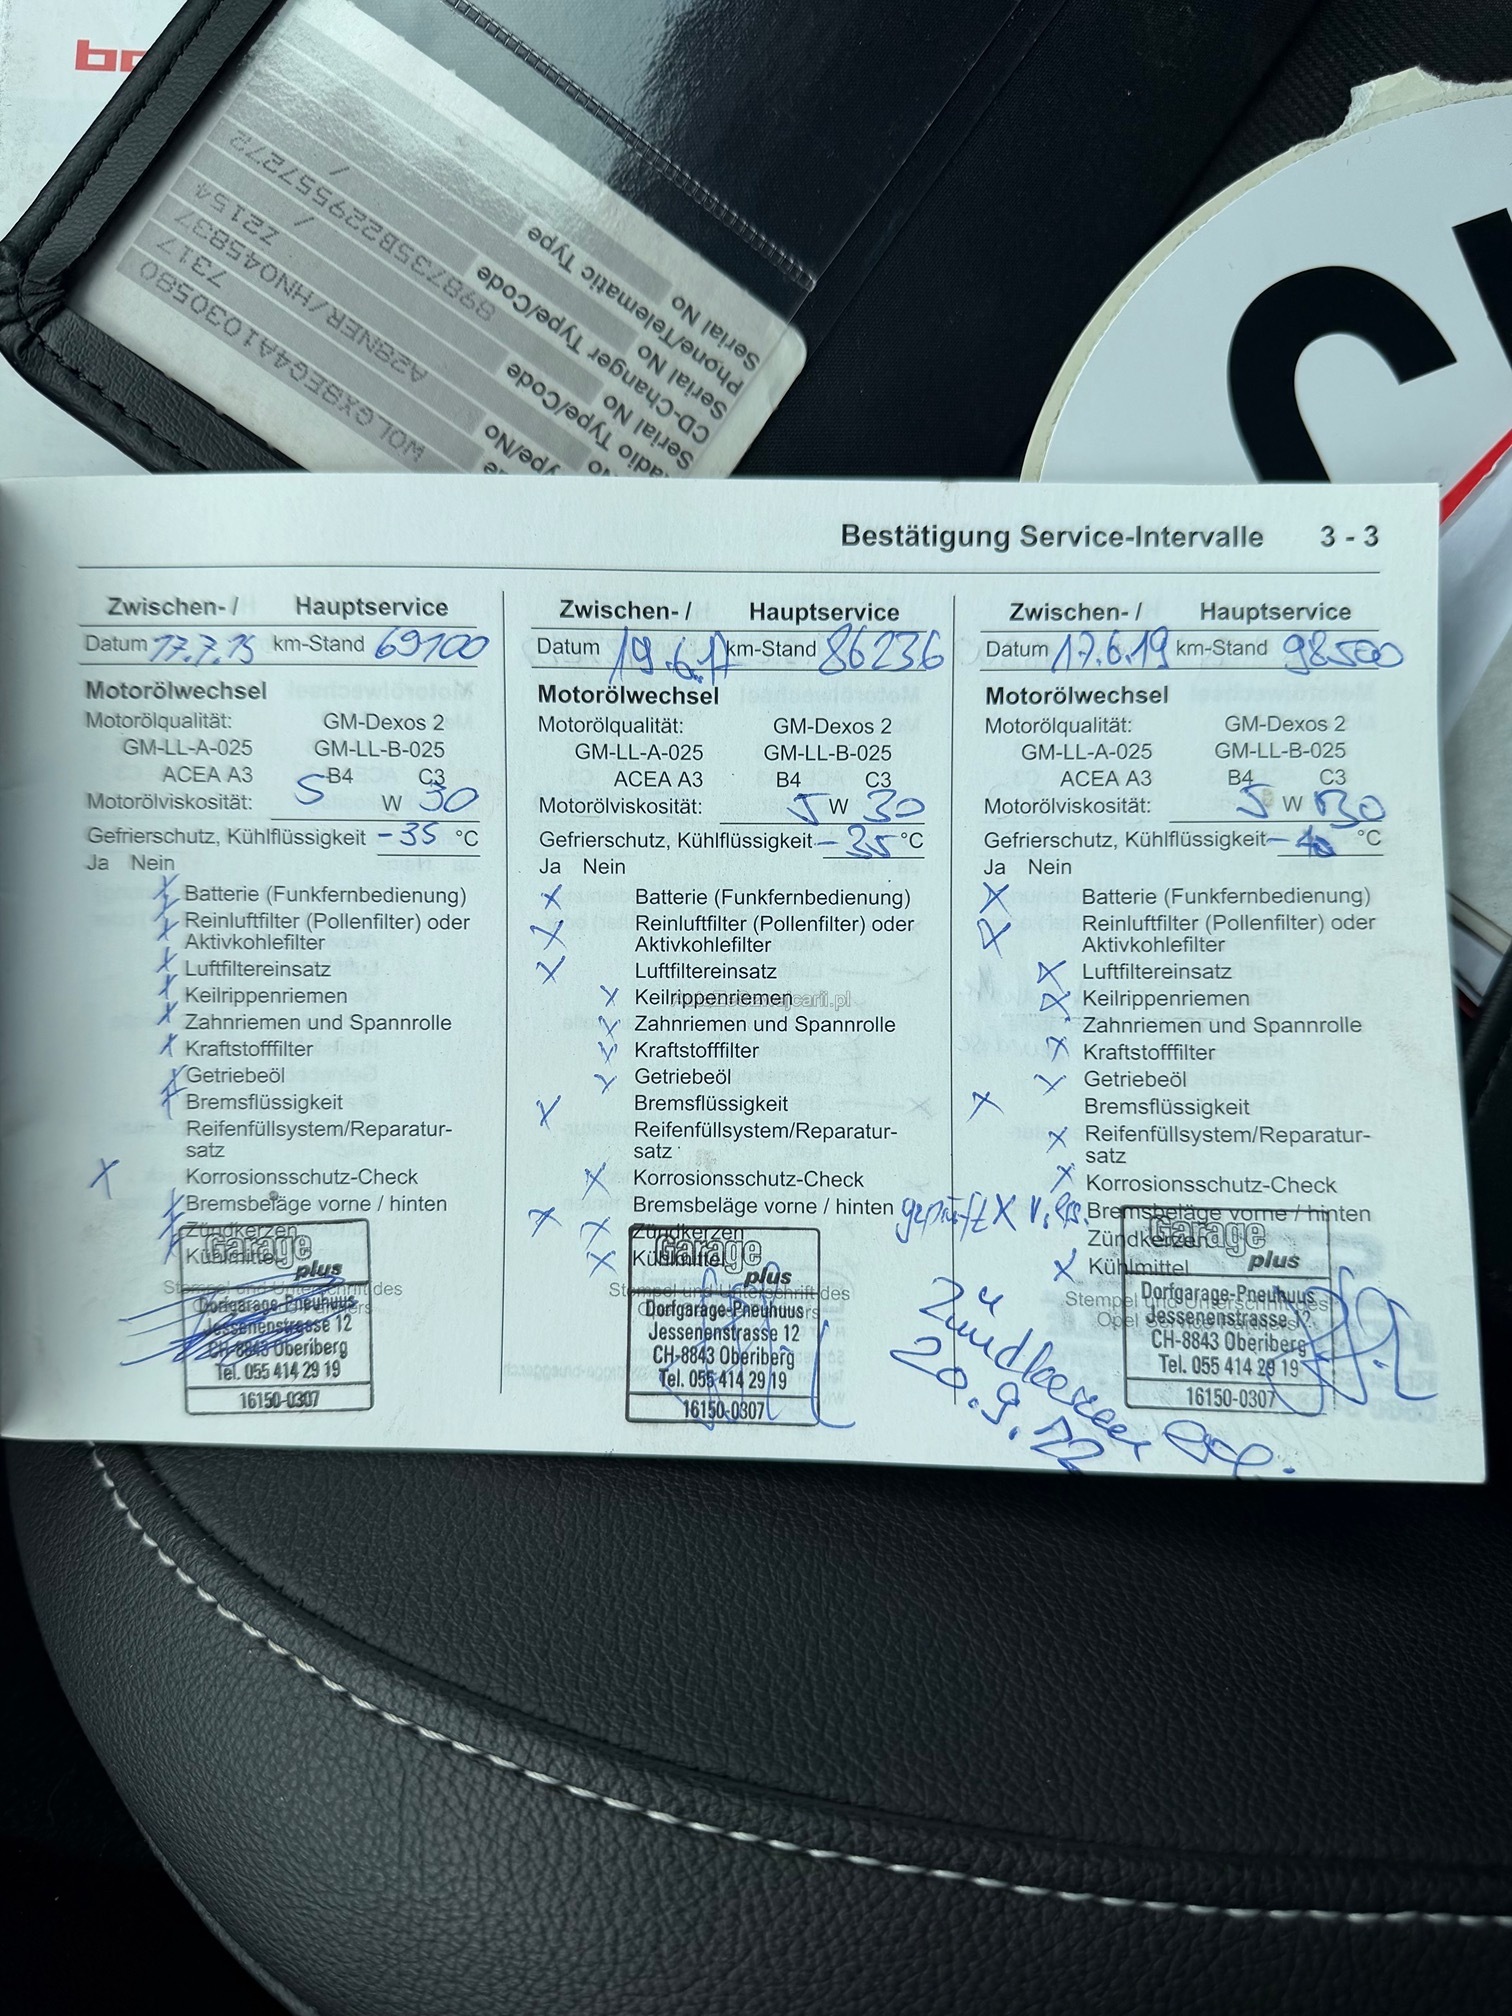 Serial No
Phone/Telematic Type
/
Serial No
CD-Changer Type/Code
898735B229557272
Serial No
Radio Type/Code
/ Z2154
A28NER/HN045837
7317
W0LGX8EG4A1030580
Bestätigung Service-Intervalle 3 - 3
Zwischen- / Hauptservice
Datum 17.7.15 km-Stand 69100
Motorölwechsel
Motorölqualität: GM-Dexos 2
GM-LL-A-025 GM-LL-B-025
ACEA A3 B4 C3
Motorölviskosität: 5 W 30
Gefrierschutz, Kühlflüssigkeit -35 °C
Ja Nein
Batterie (Funkfernbedienung)
Reinluftfilter (Pollenfilter) oder
Aktivkohlefilter
Luftfiltereinsatz
Keilrippenriemen
Zahnriemen und Spannrolle
Kraftstofffilter
Getriebeöl
Bremsflüssigkeit
Reifenfüllsystem/Reparatur-
satz
Korrosionsschutz-Check
Bremsbeläge vorne / hinten
Zündkerzen
Kühlmittel
Stempel und Unterschrift des
Garage
plus
Dorfgarage-Pneuhuus
Jessenenstrasse 12
CH-8843 Oberiberg
Tel. 055 414 29 19
16150-0307
Zwischen- / Hauptservice
Datum 19.6.17 km-Stand 86236
Motorölwechsel
Motorölqualität: GM-Dexos 2
GM-LL-A-025 GM-LL-B-025
ACEA A3 B4 C3
Motorölviskosität: 5 W 30
Gefrierschutz, Kühlflüssigkeit -35 °C
Ja Nein
Batterie (Funkfernbedienung)
Reinluftfilter (Pollenfilter) oder
Aktivkohlefilter
Luftfiltereinsatz
Keilrippenriemen
Zahnriemen und Spannrolle
Kraftstofffilter
Getriebeöl
Bremsflüssigkeit
Reifenfüllsystem/Reparatur-
satz
Korrosionsschutz-Check
Bremsbeläge vorne / hinten
Zündkerzen
Kühlmittel
Stempel und Unterschrift des
Garage
plus
Dorfgarage-Pneuhuus
Jessenenstrasse 12
CH-8843 Oberiberg
Tel. 055 414 29 19
16150-0307
Zwischen- / Hauptservice
Datum 17.6.19 km-Stand 98500
Motorölwechsel
Motorölqualität: GM-Dexos 2
GM-LL-A-025 GM-LL-B-025
ACEA A3 B4 C3
Motorölviskosität: 5 W 30
Gefrierschutz, Kühlflüssigkeit -40 °C
Ja Nein
Batterie (Funkfernbedienung)
Reinluftfilter (Pollenfilter) oder
Aktivkohlefilter
Luftfiltereinsatz
Keilrippenriemen
Zahnriemen und Spannrolle
Kraftstofffilter
Getriebeöl
Bremsflüssigkeit
Reifenfüllsystem/Reparatur-
satz
Korrosionsschutz-Check
geprüft Bremsbeläge vorne / hinten
Zündkerzen
Kühlmittel
Stempel und Unterschrift des
Opel Service Partners
Garage
plus
Dorfgarage-Pneuhuus
Jessenenstrasse 12
CH-8843 Oberiberg
Tel. 055 414 29 19
16150-0307
Zündkerzen
20.9.22